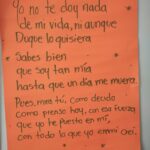 Yo no te doy nada
de mi vida, ni aunque
Duque lo quisiera
Sabes bien
que soy tan mía
hasta que un día me muera.
Pues, mira tú, como decido
como pienso hoy, an esa fuerza
que yo te puesto en mí,
con todo lo que yo en mi así.